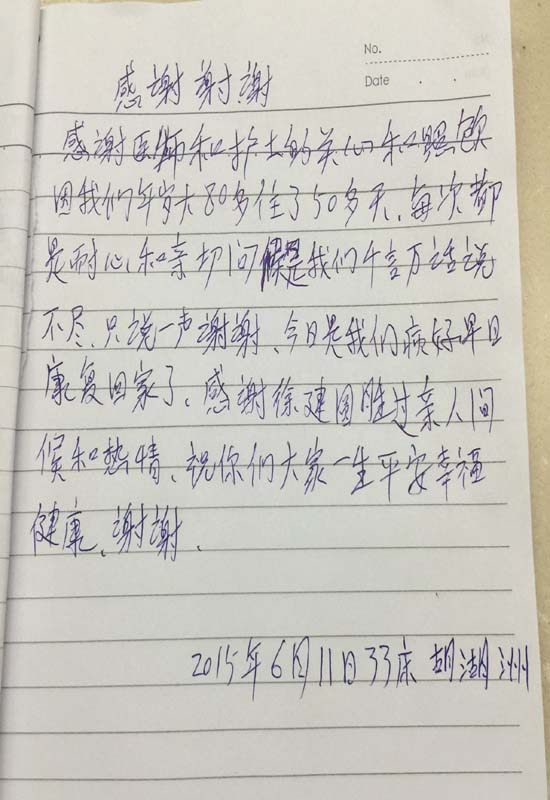 No.
Date . .
感谢谢谢
感谢医师和护士的关心和照顾
因我们年岁大80多住了50多天、每次都
是耐心和亲切问候是我们千言万语说
不尽、只说一声谢谢、今日是我们病好早日
康复回家了、感谢徐建国胜过亲人问
候和热情、祝你们大家一生平安幸福
健康、谢谢、
2015年6月11日33床 胡湖洲